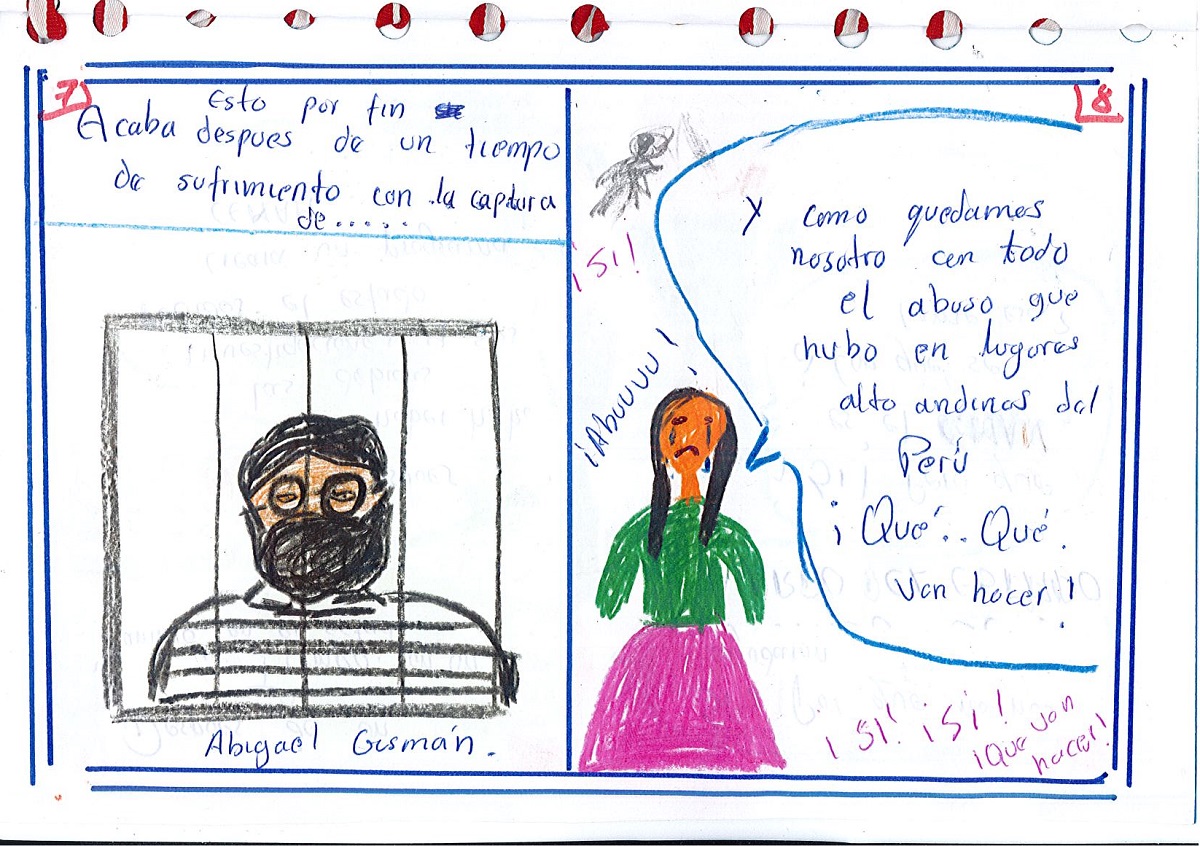 7
Esto por fin
Acaba despues de un tiempo
de sufrimiento con la captura
de.....
Abigael Gusmán.
8
Y como quedamos
nosotro con todo
el abuso que
hubo en lugares
alto andinas del
Perú
¡Qué.. Qué.
van hacer!
¡SI!
¡Abuuuu!
¡SI! ¡SI!
¡Que van
hacer!